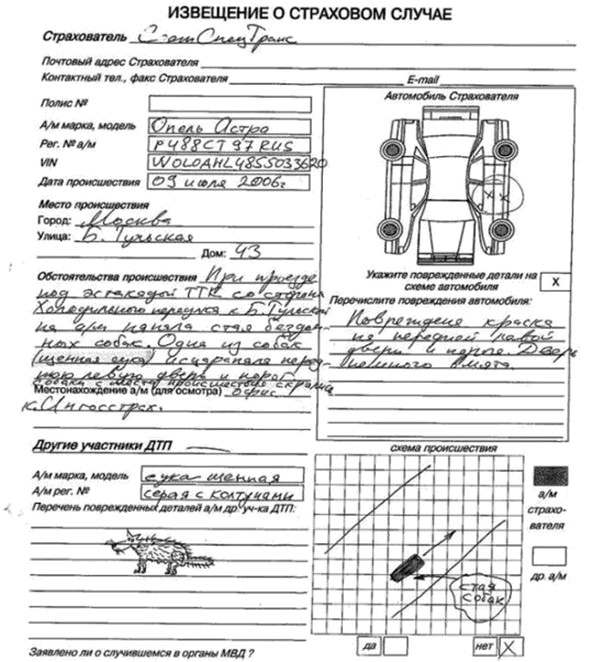 ИЗВЕЩЕНИЕ О СТРАХОВОМ СЛУЧАЕ
Страхователь СтатСпецТранс
Почтовый адрес Страхователя
Контактный тел., факс Страхователя E-mail
Полис №
А/м марка, модель Опель Астра
Рег. № а/м Р488СТ97RUS
VIN W0L0AHL4855033620
Дата происшествия 09 июля 2006г
Место происшествия
Город: Москва
Улица: Б. Тульская
Дом: 43
Обстоятельства происшествия При проезде
под эстакадой ТТК со стороны
Холодильного переулка к Б. Тульской
на а/м напала стая бездом-
ных собак. Одна из собак
(щенная сука) исцарапала перед-
нюю левую дверь и порог.
Собака с места происшествия скрылась
Местонахождение а/м (для осмотра) офис
к. Ингосстрах.
Автомобиль Страхователя
Укажите поврежденные детали на
схеме автомобиля X
Перечислите повреждения автомобиля:
Повреждена краска
на передней левой
двери и пороге. Дверь
немного вмята.
Другие участники ДТП
А/м марка, модель сука щенная
А/м рег. № серая с колтунами
Перечень поврежденных деталей а/м др. уч-ка ДТП:
схема происшествия
а/м
страхо-
вателя
др. а/м
стая
собак
Заявлено ли о случившемся в органы МВД ? да нет X